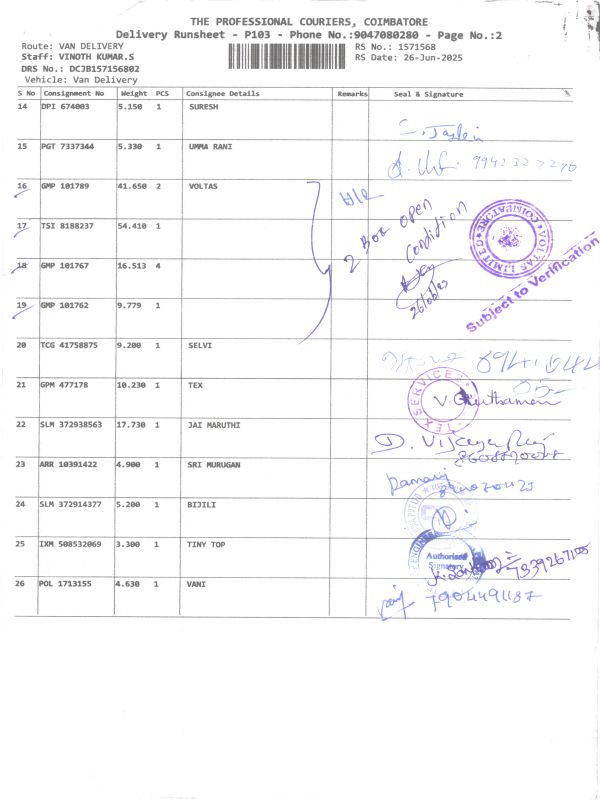 THE PROFESSIONAL COURIERS, COIMBATORE
Delivery Runsheet - P103 - Phone No.:9047080280 - Page No.:2
Route: VAN DELIVERY
RS No.: 1571568
Staff: VINOTH KUMAR.S
RS Date: 26-Jun-2025
DRS No.: DCJB157156802
Vehicle: Van Delivery
S No Consignment No Weight PCS Consignee Details Remarks Seal & Signature
14 DPI 674003 5.150 1 SURESH
15 PGT 7337344 5.330 1 UMMA RANI
16 GMP 101789 41.650 2 VOLTAS
2 Box open
condition
VOLTAS LIMITED
COIMBATORE
Subject to Verification
17 TSI 8188237 54.410 1
18 GMP 101767 16.513 4
19 GMP 101762 9.779 1
20 TCG 41758875 9.200 1 SELVI
21 GPM 477178 10.230 1 TEX
TEX SERVICES
22 SLM 372938563 17.730 1 JAI MARUTHI
D. Vijayaraj
23 ARR 10391422 4.900 1 SRI MURUGAN
24 SLM 372914377 5.200 1 BIJILI
25 IXM 508532069 3.300 1 TINY TOP
Authorised
Signatory
7339267105
26 POL 1713155 4.630 1 VANI
7904491187